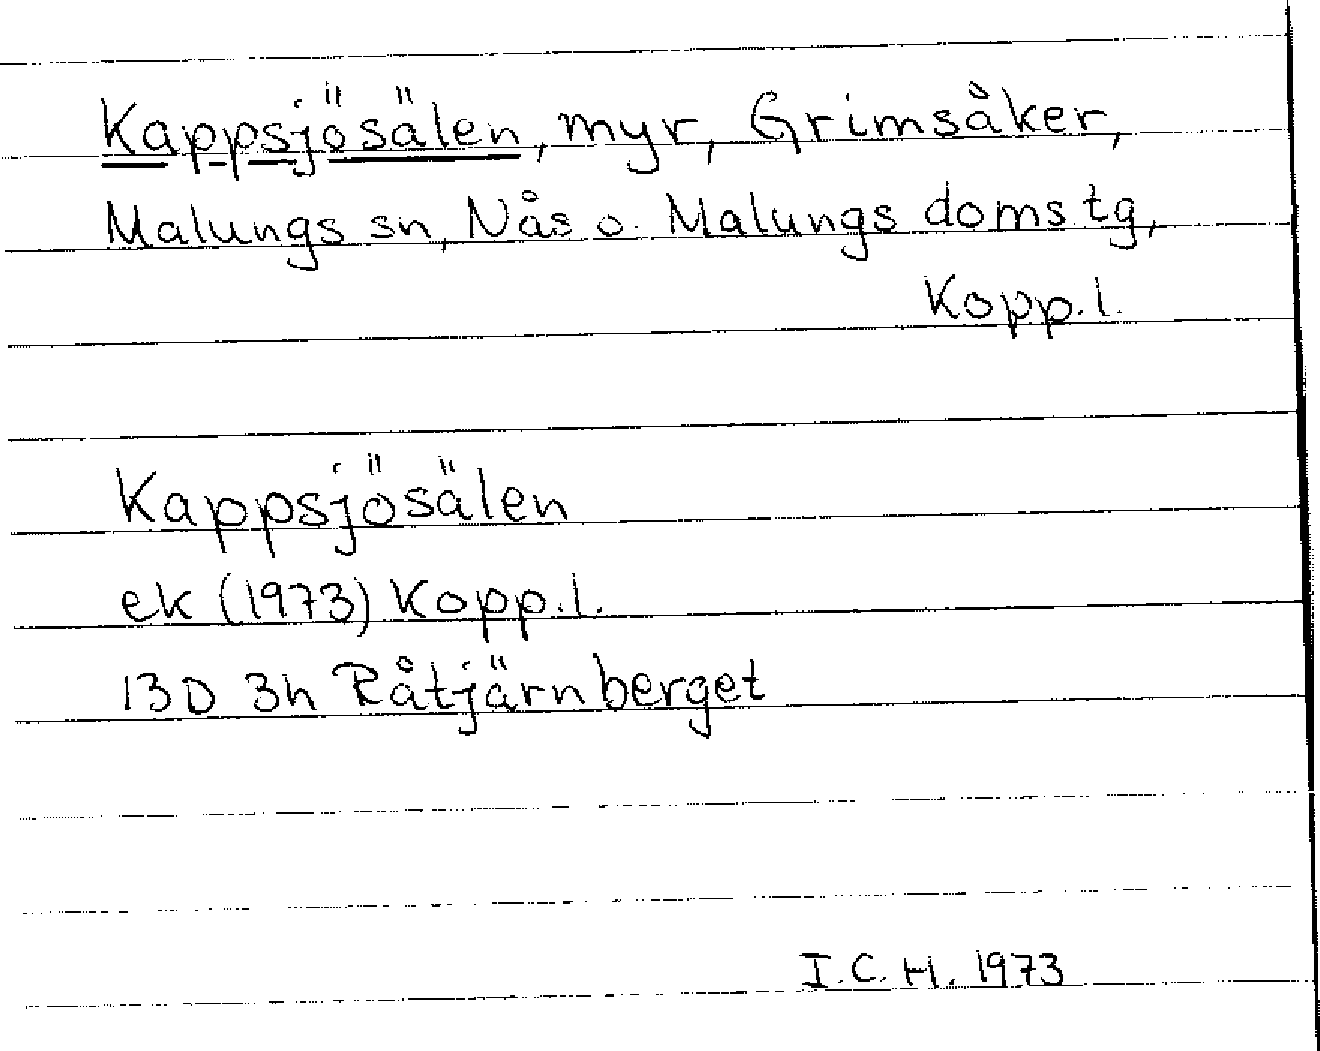 Kappsjösälen, myr, Grimsåker,
Malungs sn, Nås o. Malungs domstg,
Kopp.l.
Kappsjösälen
ek (1973) Kopp.l.
13D 3h Råtjärnberget
I.C.H. 1973